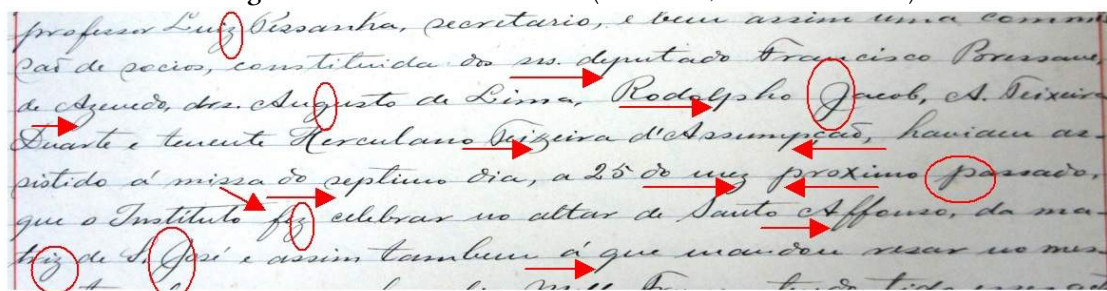 professor Luiz Pessanha, secretario, e bem assim uma commi
são de socios, constituida dos srs. deputado Francisco Bressane,
de Azevedo, drs. Augusto de Lima, Rodolpho Jacob, A. Teixeira
Duarte e tenente Herculano Teixeira d'Assumpção, haviam as-
sistido á missa do septimo dia, a 25 do mez proximo passado,
que o Instituto fez celebrar no altar de Santo Affonso, da ma-
triz de S. José e assim tambem á que mandou resar no mes